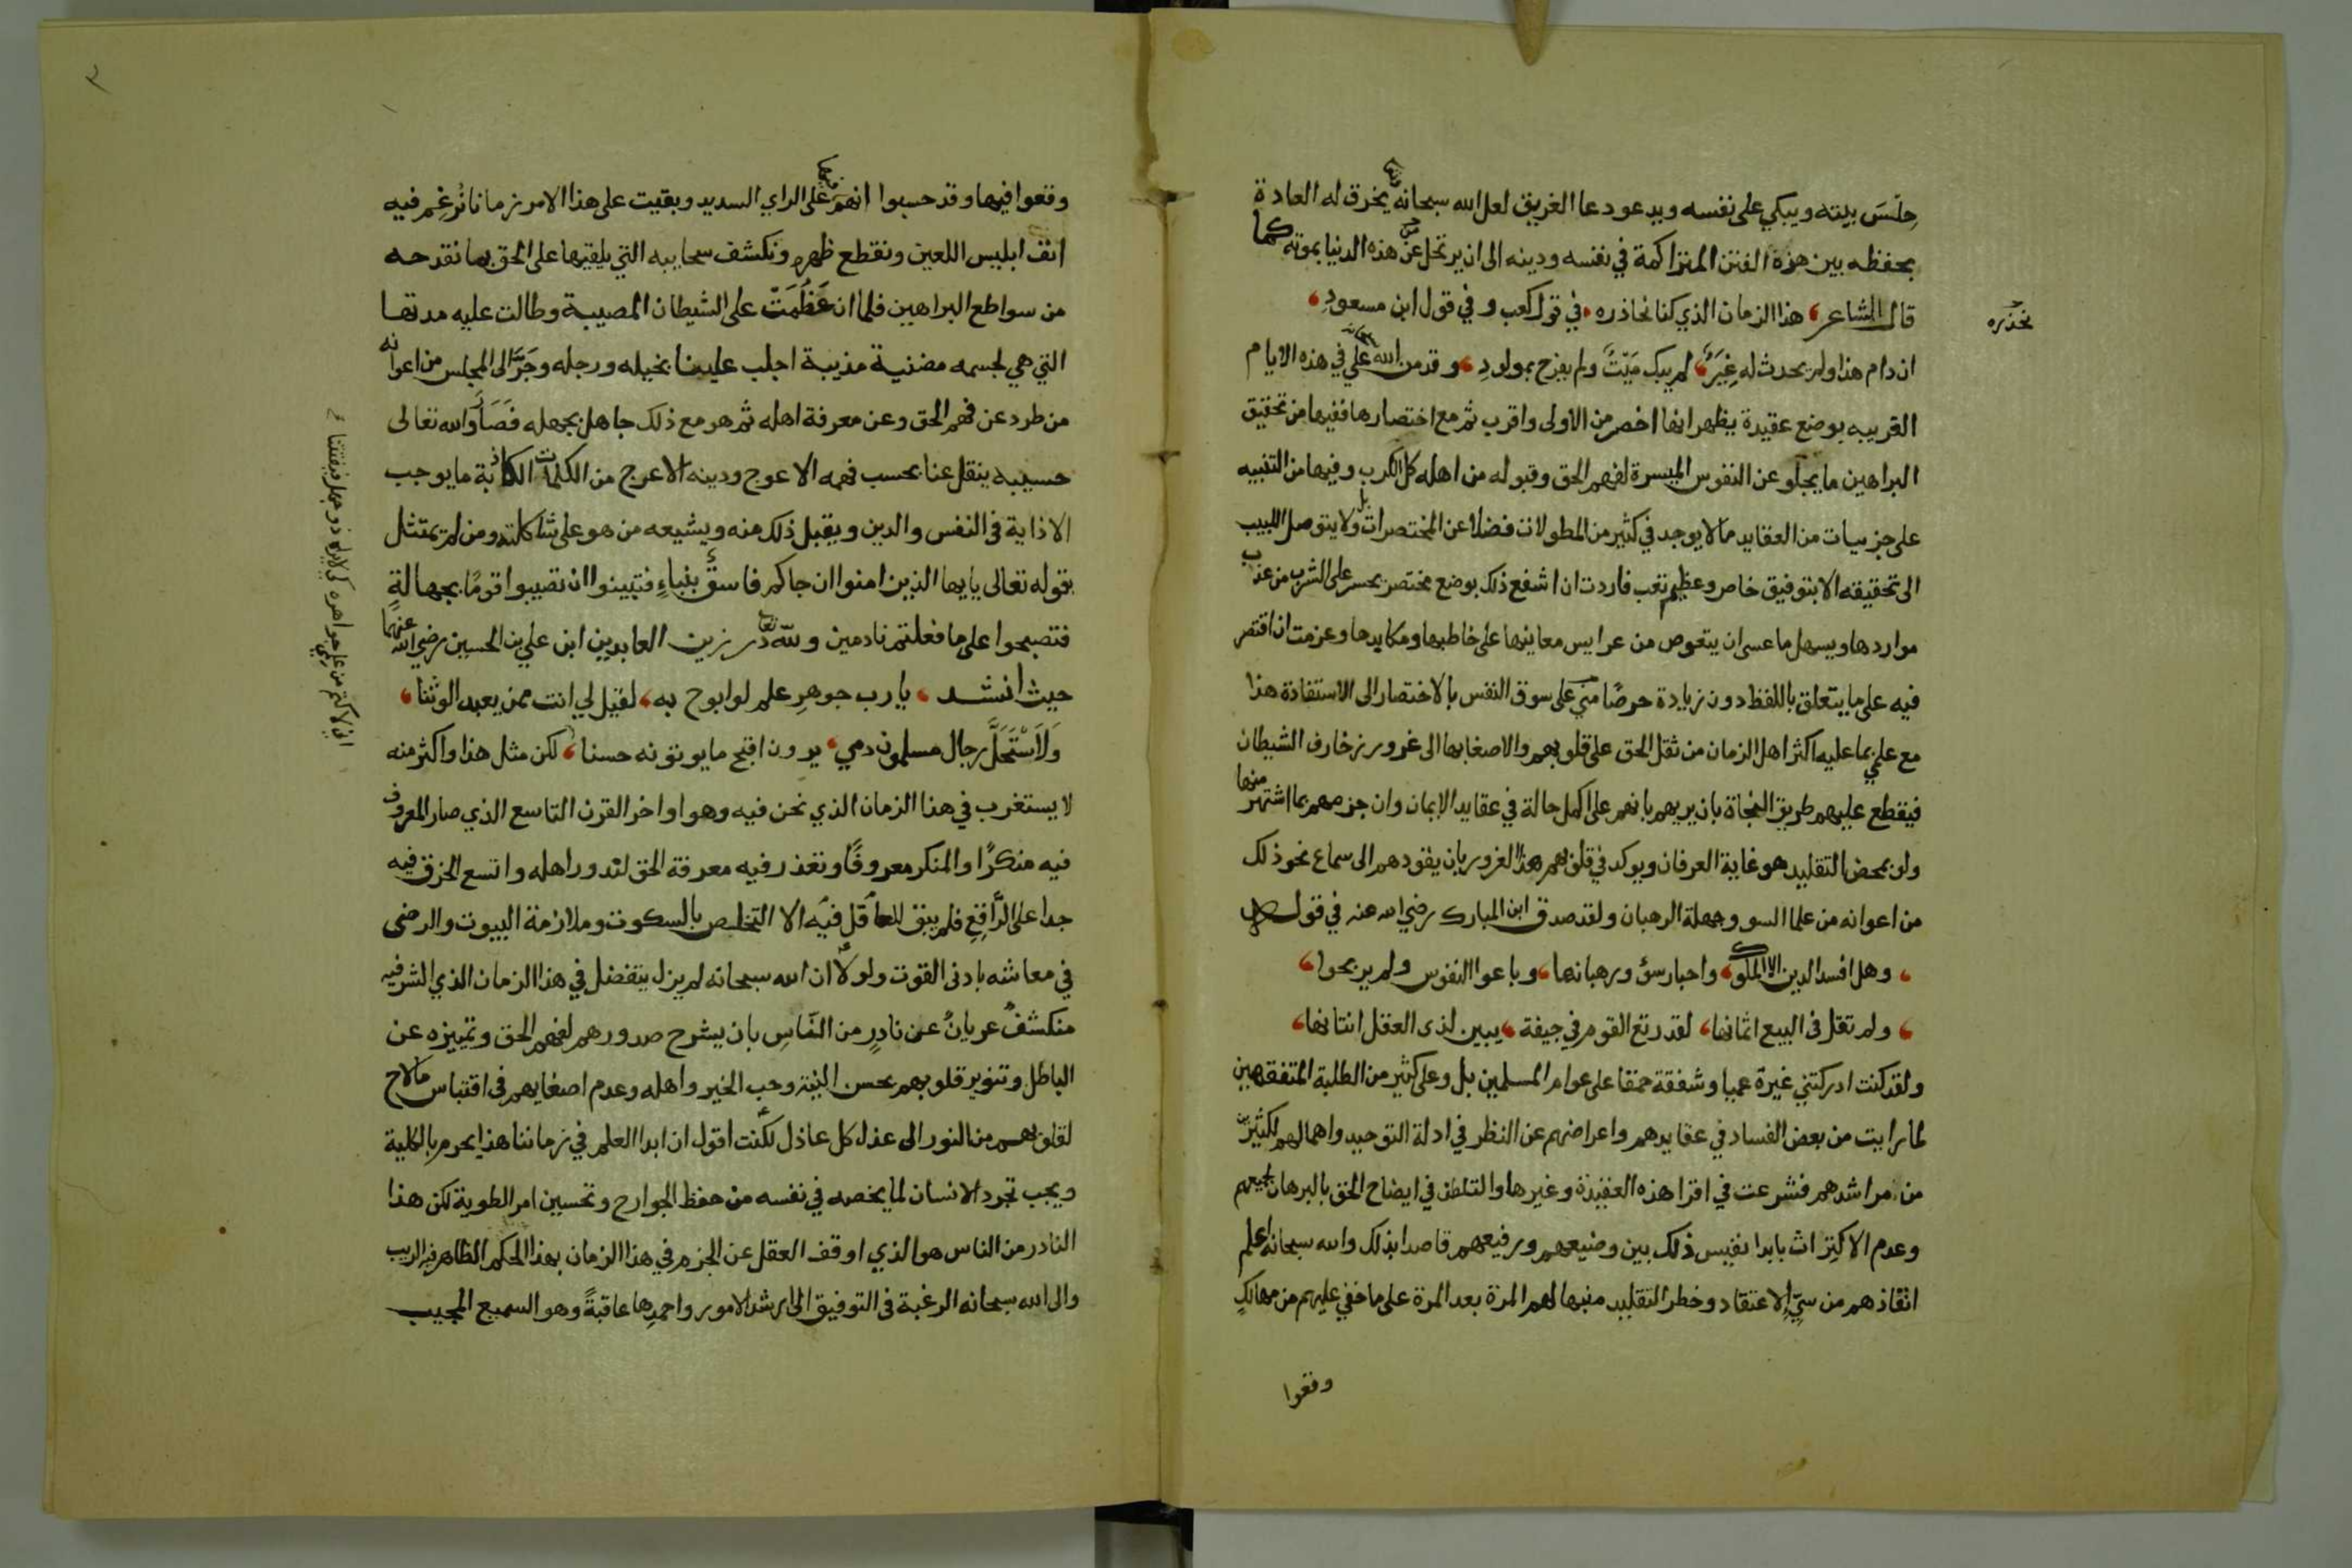 حِلْسَ بيته ويبكي على نفسه ويدعو دعا الغريق لعل الله سبحانه يخرق له العادة
بحفظه بين هذه الفتن المتراكمة في نفسه ودينه الى ان يرتحل عن هذه الدنيا بموته كما
قال الشاعر هذا الزمان الذي كنا نحاذره في قول كعب وفي قول ابن مسعودِ
نحذره
ان دام هذا ولم يحدث له غِيَرٌ لم يبك مَيْتٌ ولم يفرح بمولودِ وقد من الله علي في هذه الايام
القريبه بوضع عقيدة يظهر انها اخصر من الاولى واقرب ثم مع اختصارها ففيها من تحقيق
البراهين ما يجلو عن النفوس الميسرة لفهم الحق وقبوله من اهله كل الكرب وفيها من التنبيه
على جزييات من العقايد ما لا يوجد في كثير من المطولات فضلا عن المختصرات بل ولا يتوصل اللبيب
الى تحقيقه الا بتوفيق خاص وعظيم تعب فاردت ان اشفع ذلك بوضع مختصر يجسر على الشرب من عذب
مواردها ويسهل ما عسى ان يتعوص من عرايس معاينها على خاطبها ومكابدها وعزمت ان اقتصر
فيه على ما يتعلق باللفظ دون زيادة حرصًا مني على سوق النفس بالاختصار الى الاستفادة هذا
مع علمي بما عليه اكثر اهل الزمان من ثقل الحق على قلوبهم والاصغا بها الى غرور زخارف الشيطان
فيقطع عليهم طريق النجاة بان يريهم بانهم على اكمل حالة في عقايد الايمان وان جزمهم بما اشتهر منها
ولو بمحض التقليد هو غاية العرفان ويوكد في قلوبهم هذا الغرور بان يقودهم الى سماع نحو ذلك
من اعوانه من علما السو وجهلة الرهبان ولقد صدق ابن المبارك رضي الله عنه في قوله
وهل افسد الدين الا الملوك واحبار سؤ ورهبانها وباعوا النفوس ولم يربحوا
ولم تغل في البيع اثمانها لقد رتع القوم في جيفة يبين لذى العقل انتانها
ولقد كنت ادركتني غيرة عميا وشفقة حمقا على عوام المسلمين بل وعلى كثير من الطلبة المتفقهين
لما رايت من بعض الفساد في عقايدهم واعراضهم عن النظر في ادلة التوحيد واهمالهم لكثير
من مراشدهم فشرعت في اقرا هذه العقيدة وغيرها والتلطف في ايضاح الحق بالبرهان لجميعهم
وعدم الاكتراث بابدا نفيس ذلك بين وضيعهم ورفيعهم قاصدا بذلك والله سبحانه اعلم
انقاذهم من سيّ الاعتقاد وخطر التقليد منبها لهم المرة بعد المرة على ما خفي عليهم من مهالك
وقعوا
وقعوا فيها وقد حسبوا انهم منها على الراي السديد وبقيت على هذا الامر زمانا نُرغِم فيه
انف ابليس اللعين ونقطع ظهره ونكشف سحايبه التي يلقيها على الحق بما نقدحه
من سواطع البراهين فلما ان عَظُمَت على الشيطان المصيبة وطالت عليه مدتها
التي هي لجسمه مضنية مذيبة اجلب علينا بخيله ورجله وجَرَّ الى المجلس من اعوانه
من طرد عن فهم الحق وعن معرفة اهله ثم هو مع ذلك جاهل بجهله فَصَارَ والله تعالى
حسيبه ينقل عنا بحسب فهمه الاعوج ودينه الاعرج من الكلمات الكاذبة ما يوجب
الاذاية في النفس والدين ويقبل ذلك منه ويشيعه من هو على شاكلته ومن لم يمتثل
بقوله تعالى يايها الذين امنوا ان جاكم فاسقٌ بنباءٍ فتبينوا ان تصيبوا قومًا بجهالةٍ
فتصبحوا على ما فعلتم نادمين ولله تعالى در زين العابدين ابن علي بن الحسين رضي الله عنهما
حيث انشد يا رب جوهرِ علم لو ابوح به لقيل لي انت ممن يعبد الوثنا
وَلَاَسْتَحَلَّ رجال مسلمون دمي يرون اقبح ما يوتونه حسنا لكن مثل هذا واكثر منه
لا يستغرب في هذا الزمان الذي نحن فيه وهو اواخر القرن التاسع الذي صار المعروف
فيه منكرًا والمنكر معروفًا وتعذر فيه معرفة الحق لندور اهله واتسع الخرق فيه
جدا على الرَّاقِعِ فلم يبق للعاقل فيه الا التخلص بالسكوت وملازمة البيوت والرضى
في معاشه بادنى القوت ولولا ان الله سبحانه لم يزل يتفضل في هذا الزمان الذي الشر فيه
منكشفٌ عريانٌ عن نادرٍ من النّاسِ بان يشرح صدورهم لفهم الحق وتمييزه عن
الباطل وتنوير قلوبهم بحسن النية وحب الخير واهله وعدم اصغايهم في اقتباس ما لاح
لقلوبهم من النور الى عذل كل عاذل لكنت اقول ان ابدا العلم في زماننا هذا يحرم بالكلية
ويجب تجرد الانسان لما يخصه في نفسه من حفظ الجوارح وتحسين امر الطوية لكن هذا
النادر من الناس هو الذي اوقف العقل عن الجزم في هذا الزمان بهذا الحكم الظاهر فيه الريب
والى الله سبحانه الرغبة في التوفيق الى ارشد الامور واحمدِها عاقبةً وهو السميع المجيب
اني لاكتم من علمي جواهره كي لا يراه ذو جهل فيفتتنا